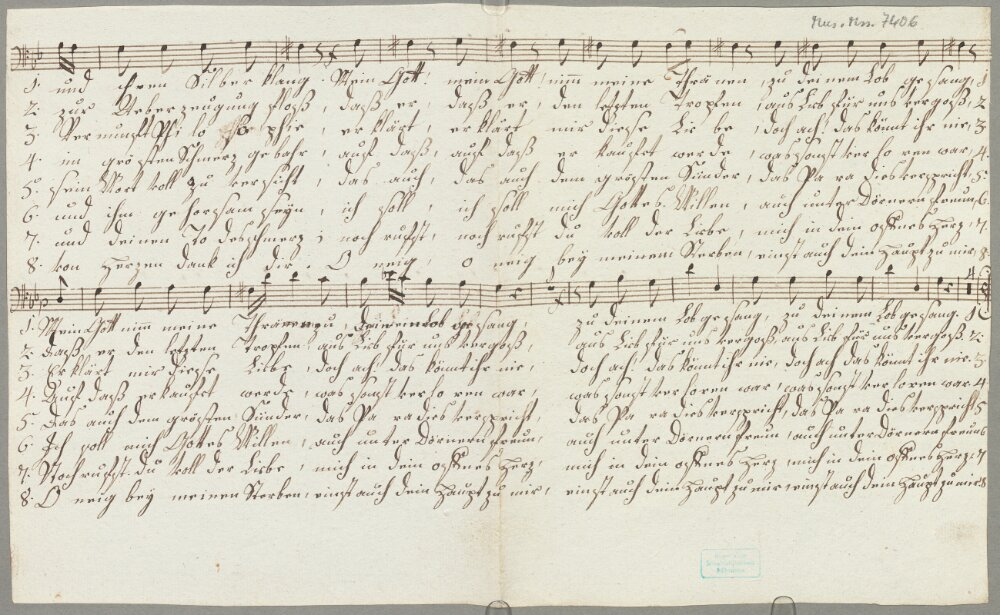 Mus. Mss. 7406
1. und ihren Silberklang. Mein Gott, mein Gott, nimm meine Thränen, zu deinem Lobgesang, 1
2. zur Ueberzeugung floß, daß er, daß er, den letzten Tropfen, aus Lieb für uns vergoß, 2
3. Vernunft Philosophie, erklärt, erklärt mir diese Liebe, doch ach! das könnt ihr nie, 3
4. im grösten Schmerz gebahr, auf daß, auf daß er kaufet werde, was sonst verlohren war, 4.
5. sein Wort voll Zuversicht, das auch, das auch dem grösten Sünder, das Paradies verspricht, 5
6. und ihm gehorsam seyn, ich soll, ich soll mich Gottes Willen, auch unter Dörnern freun, 6.
7. und deinen Todesschmerz, noch rufst, noch rufst du voll der Liebe, mich in dein offnes Herz, 7.
8. von Herzen dank ich dir. O neig, O neig bey meinem Sterben, einst auch dein Haupt zu mir, 8
1. Mein Gott nimm meine Thränen zu, deinem Lobgesang, zu deinem Lobgesang, zu deinem Lobgesang. 1
2. Daß er den letzten Tropfen, aus Lieb für uns vergoß, aus Lieb für uns vergoß, aus Lieb für uns vergoß. 2.
3. Erklärt mir diese Liebe, doch ach! das könnt ihr nie, doch ach! das könnt ihr nie, doch ach das könnt ihr nie. 3
4. Auf daß erkaufet werde, was sonst verlohren war, was sonst verlohren war, was sonst verlohren war. 4
5. Das auch dem grösten Sünder, das Paradies verspricht, das Paradies verspricht, das Paradies verspricht, 5
6. Ich soll mich Gottes Willen, auch unter Dörnern freun, auch unter Dörnern freun, auch unter Dörnern freun 6
7. Noch rufst du voll der Liebe, mich in dein offnes Herz, mich in dein offnes Herz, mich in dein offnes Herz. 7
8. O neig bey meinem Sterben, einst auch dein Haupt zu mir, einst auch dein Haupt zu mir, einst auch dein Haupt zu mir 8